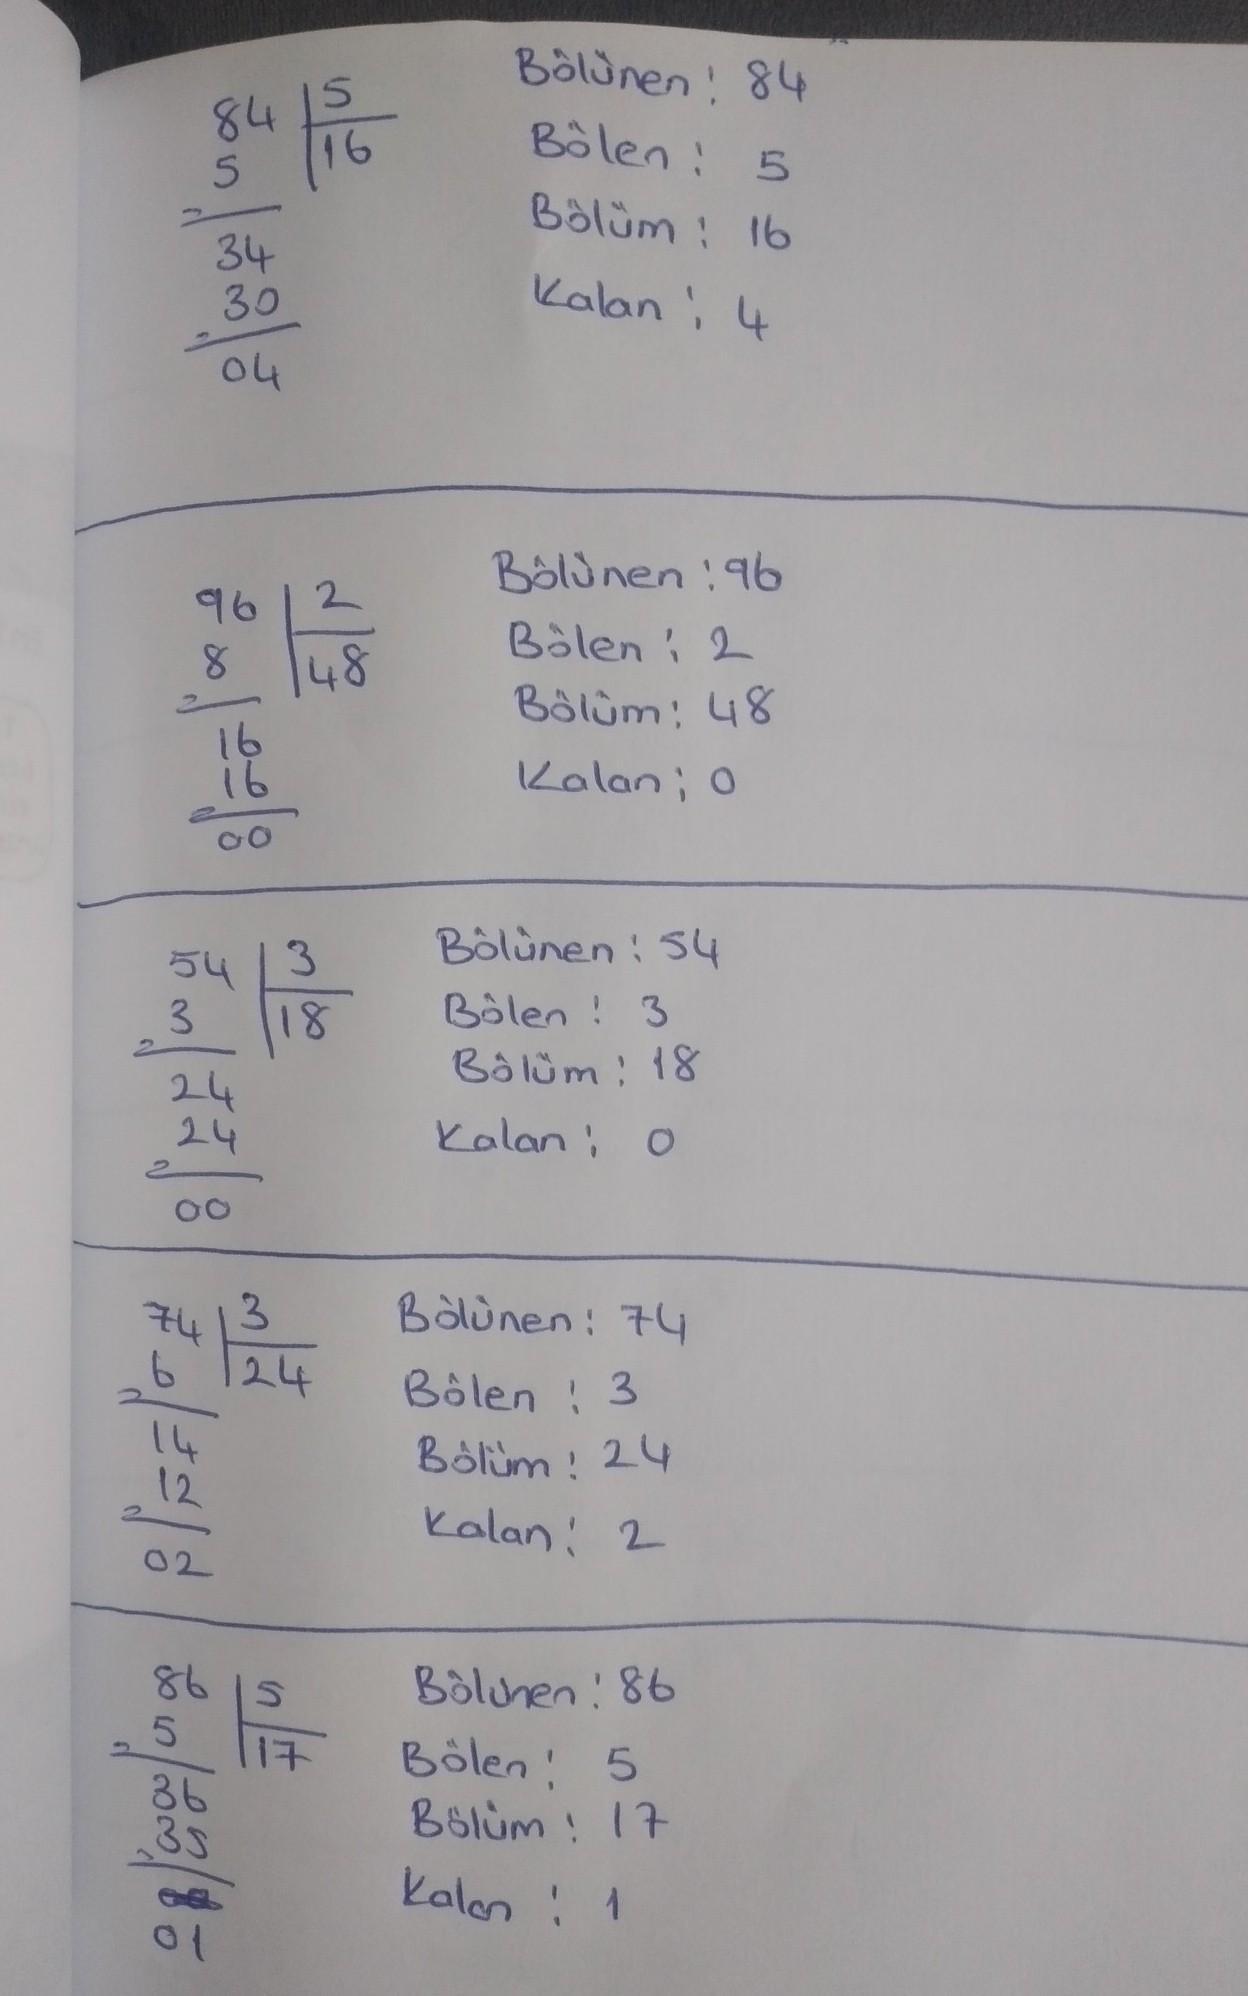 84 5
5 16
34
30
04
Bölünen: 84
Bölen: 5
Bölüm: 16
Kalan: 4
96 2
8 48
16
16
00
Bölünen: 96
Bölen: 2
Bölüm: 48
Kalan: 0
54 3
3 18
24
24
00
Bölünen: 54
Bölen: 3
Bölüm: 18
Kalan: 0
74 3
6 24
14
12
02
Bölünen: 74
Bölen: 3
Bölüm: 24
Kalan: 2
86 5
5 17
36
35
01
Bölünen: 86
Bölen: 5
Bölüm: 17
Kalan: 1